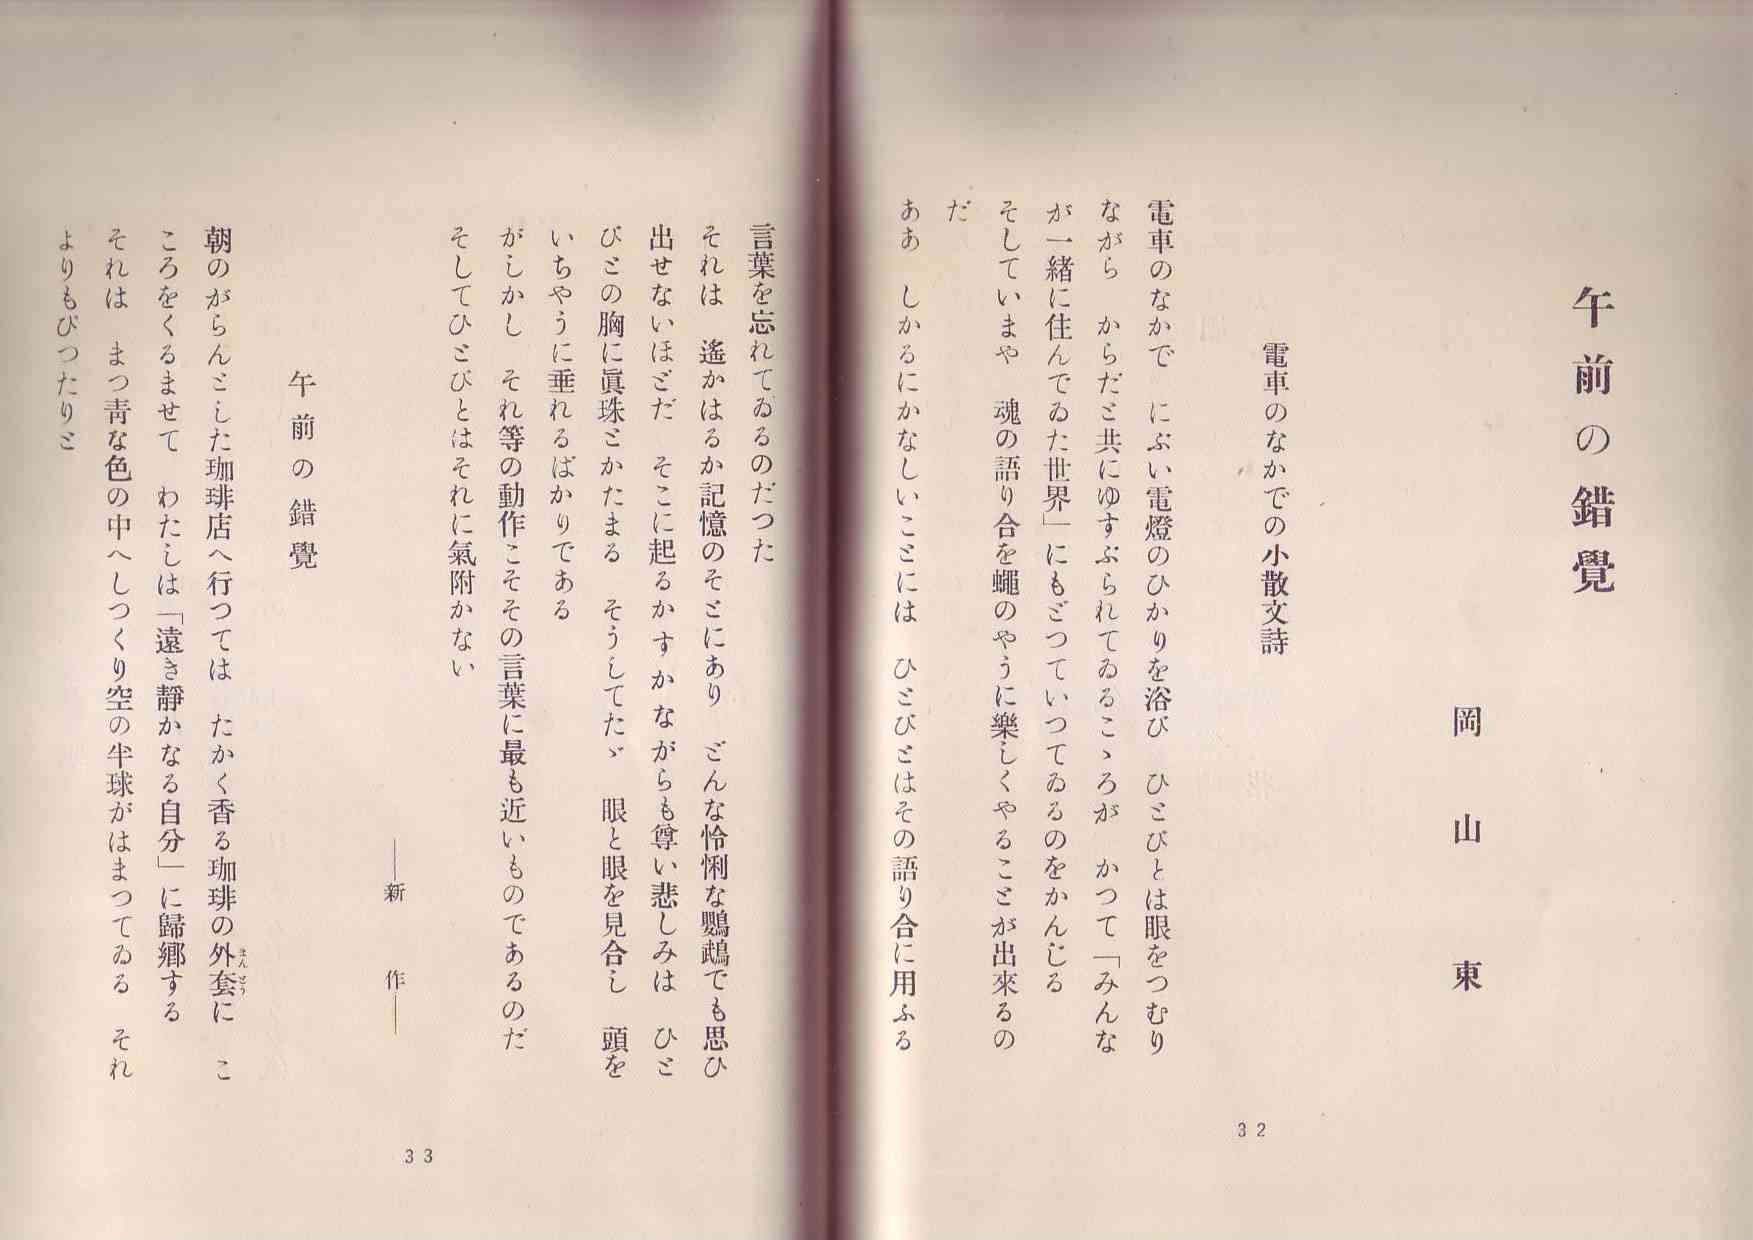 午前の錯覺
岡山東
電車のなかでの小散文詩
電車のなかで　にぶい電燈のひかりを浴び　ひとびとは眼をつむり
ながら　からだと共にゆすぶられてゐるこゝろが　かつて「みんな
が一緒に住んでゐた世界」にもどつていつてゐるのをかんじる
そしていまや　魂の語り合を蠅のやうに樂しくやることが出來るの
だ
ああ　しかるにかなしいことには　ひとびとはその語り合に用ふる
32
言葉を忘れてゐるのだつた
それは　遙かはるか記憶のそとにあり　どんな怜悧な鸚鵡でも思ひ
出せないほどだ　そこに起るかすかながらも尊い悲しみは　ひと
びとの胸に眞珠とかたまる　そうしてたゞ　眼と眼を見合し　頭を
いちやうに垂れるばかりである
がしかし　それ等の動作こそその言葉に最も近いものであるのだ
そしてひとびとはそれに氣附かない
―新作―
午前の錯覺
朝のがらんとした珈琲店へ行つては　たかく香る珈琲の外套に　こ
まんとう
ころをくるませて　わたしは「遠き靜かなる自分」に歸郷する
それは　まつ青な色の中へしつくり空の半球がはまつてゐる　それ
よりもぴつたりと
33